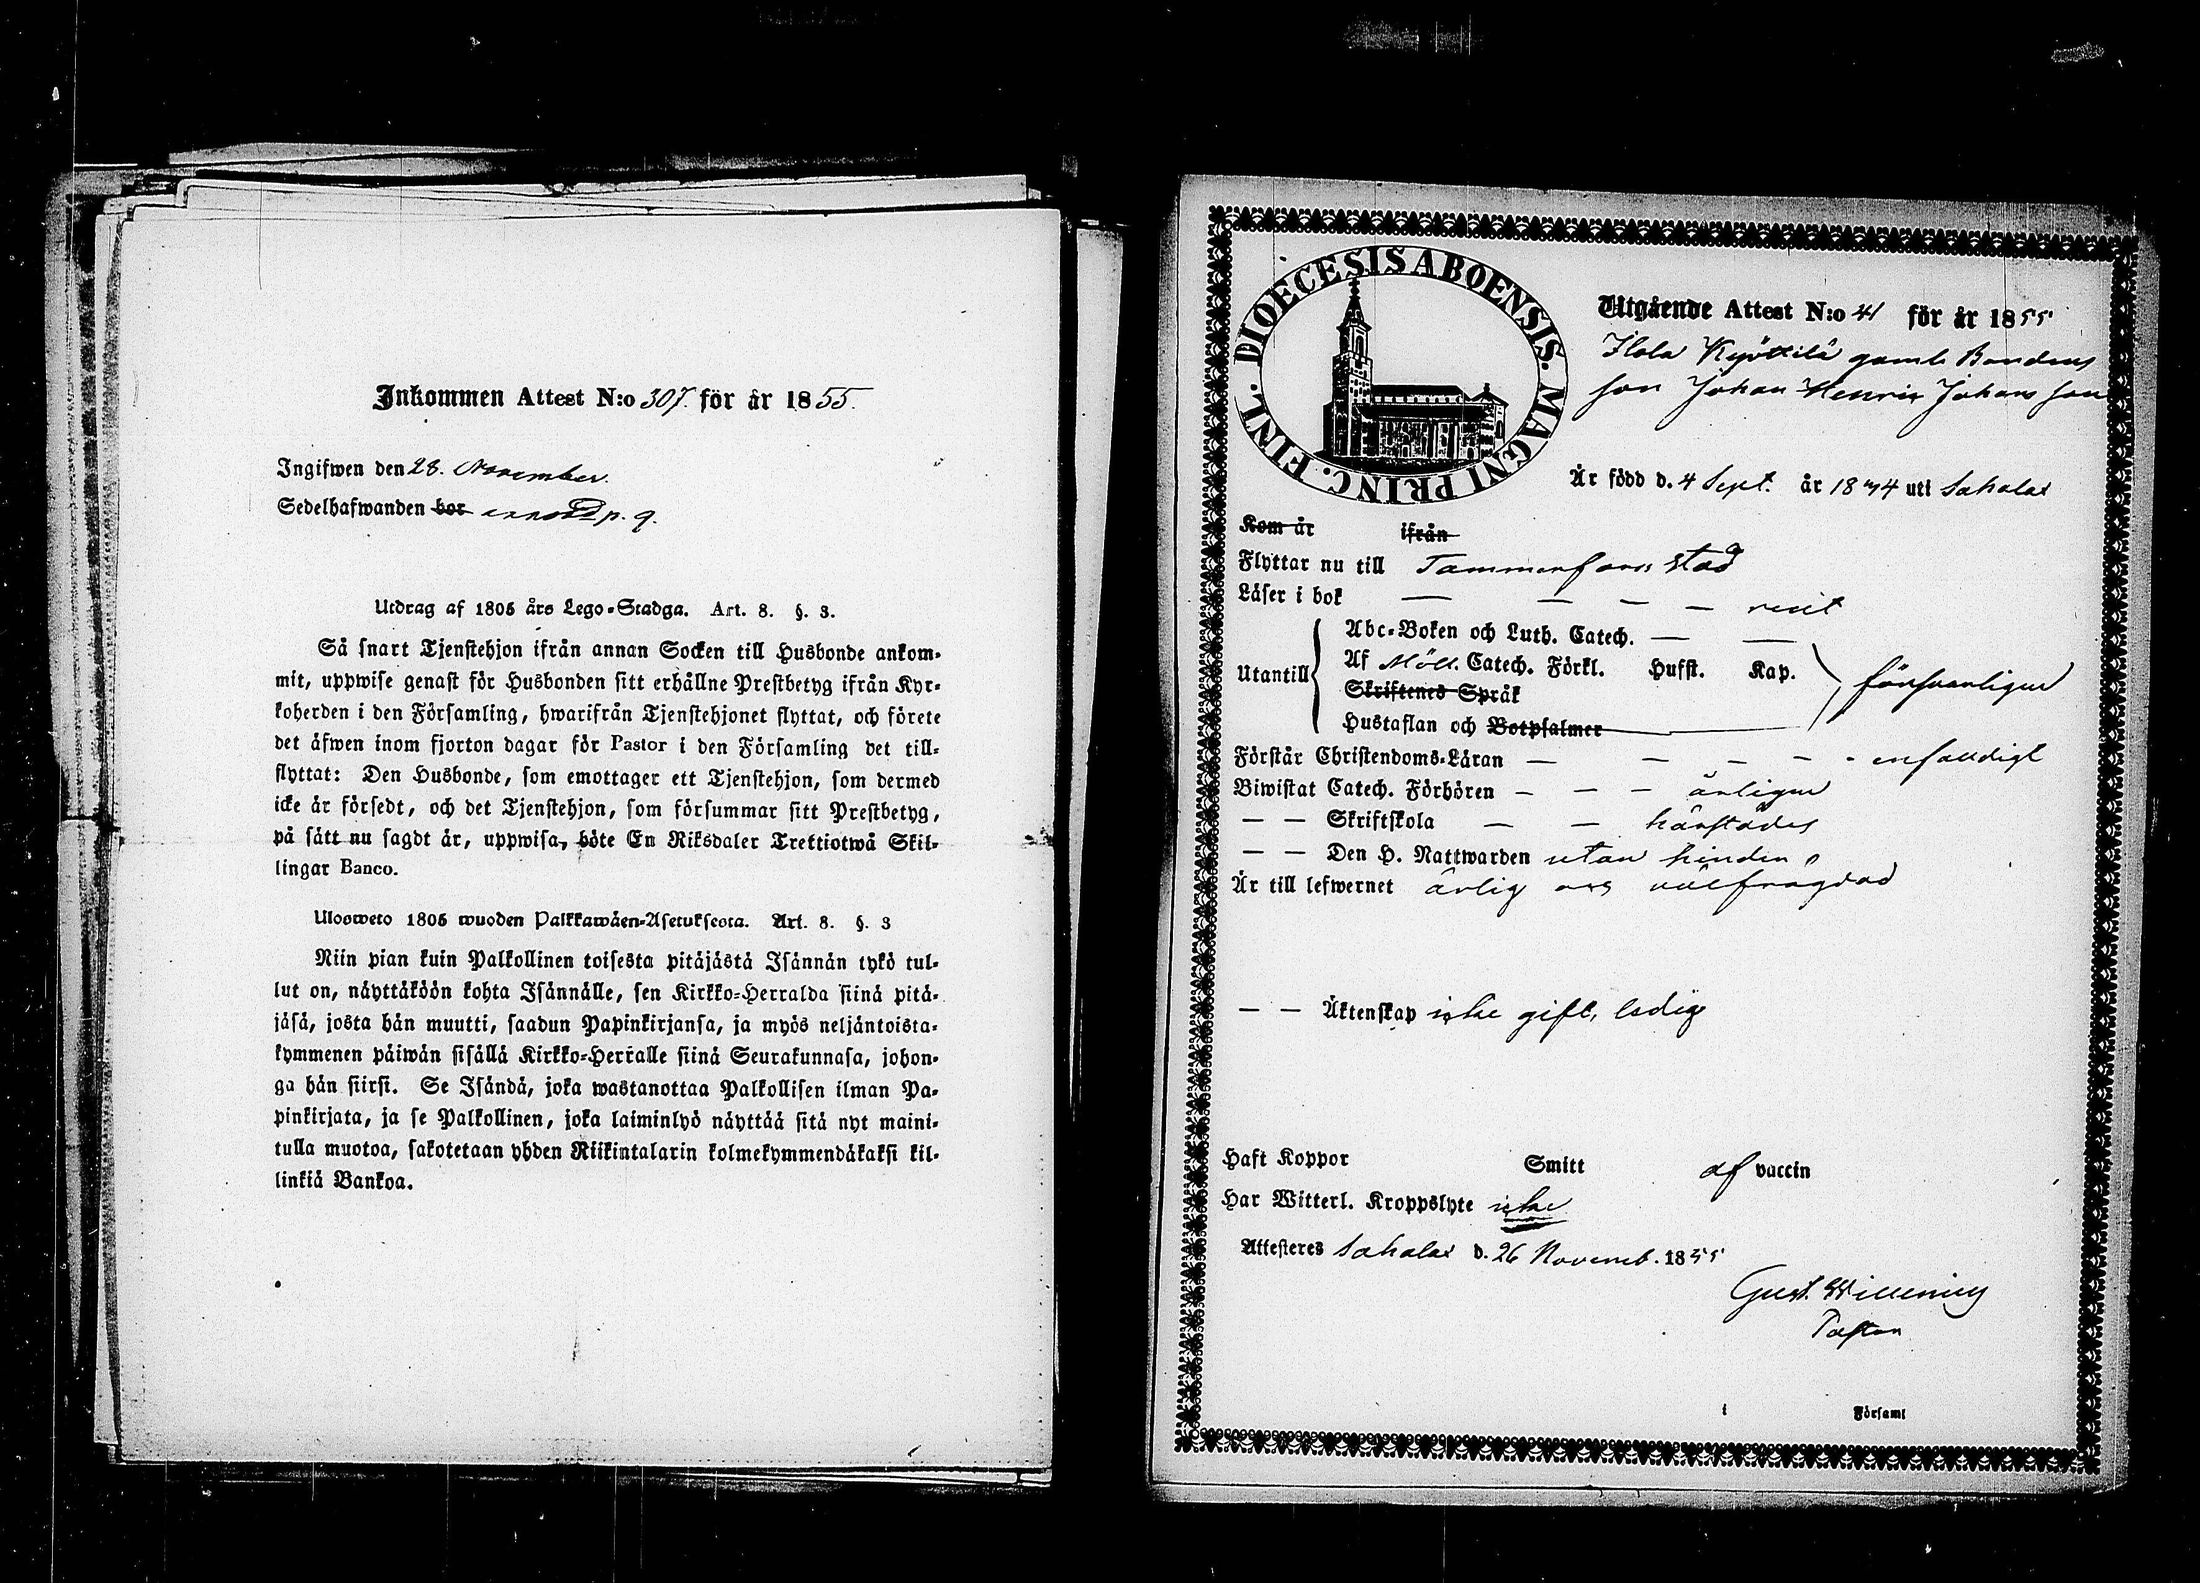 Inkommen Attest N:o 307. för år 1855.
Ingifwen den 28. November.
Sedelhafwanden bor p. 9.
Utdrag af 1805 års Lego-Stadga. Art. 8. §. 3.
Så snart Tjenstehjon ifrån annan Socken till Husbonde ankom-
mit, uppwise genast för Husbonden sitt erhållne Prestbetyg ifrån Kyr-
koherden i den Församling, hwarifrån Tjenstehjonet flyttat, och förete
det äfwen inom fjorton dagar för Pastor i den Församling det till-
flyttat: Den Husbonde, som emottager ett Tjenstehjon, som dermed
icke är försedt, och det Tjenstehjon, som försummar sitt Prestbetyg,
på sätt nu sagdt är, uppwisa, böte En Riksdaler Trettiotwå Skil-
lingar Banco.
Ulosweto 1805 wuoden Palkkawäen-Asetuksesta. Art. 8. §. 3
Niin pian kuin Palkollinen toisesta pitäjästä Isännän tykö tul-
lut on, näyttäköön kohta Isännälle, sen Kirkko-Herralda siinä pitä-
jäsä, josta hän muutti, saadun Papinkirjansa, ja myös neljäntoista-
kymmenen päiwän sisällä Kirkko-Herralle siinä Seurakunnasa, johon-
ga hän siirsi. Se Isändä, joka wastanottaa Palkollisen ilman Pa-
pinkirjata, ja se Palkollinen, joka laiminlyö näyttää sitä nyt maini-
tulla muotoa, sakotetaan yhden Riikintalarin kolmekymmendäkaksi kil-
linkiä Bankoa.
DIOECESIS ABOENSIS. MAGNI PRINC. FINL.
Utgående Attest N:o 41 för år 1855
Ilola Kyöttilä gamle Bondens
son Johan Henric Johans son
Är född d. 4 Sept. år 1834 uti Sahalax
Kom år ifrån
Flyttar nu till Tammerfors stad
Läser i bok — — — — rent
Abc-Boken och Luth. Catech. — —
Utantill Af Möll. Catech. Förkl. Hufst. Kap. försvarligen
Skriftenes Språk
Hustaflan och Botpsalmer
Förstår Christendoms-Läran — — — — enfaldigt
Biwistat Catech. Förhören — — — årligen
— — Skriftskola — — härstädes
— — Den H. Nattwarden utan hinder
Är till lefwernet ärlig och välfrägdad
— — Äktenskap icke gift, ledig
Haft Koppor Smitt af vaccin
Har Witterl. Kroppslyte icke
Attesteres Sahalax d. 26 Novemb. 1855
Gust.
Pastor
i Församl